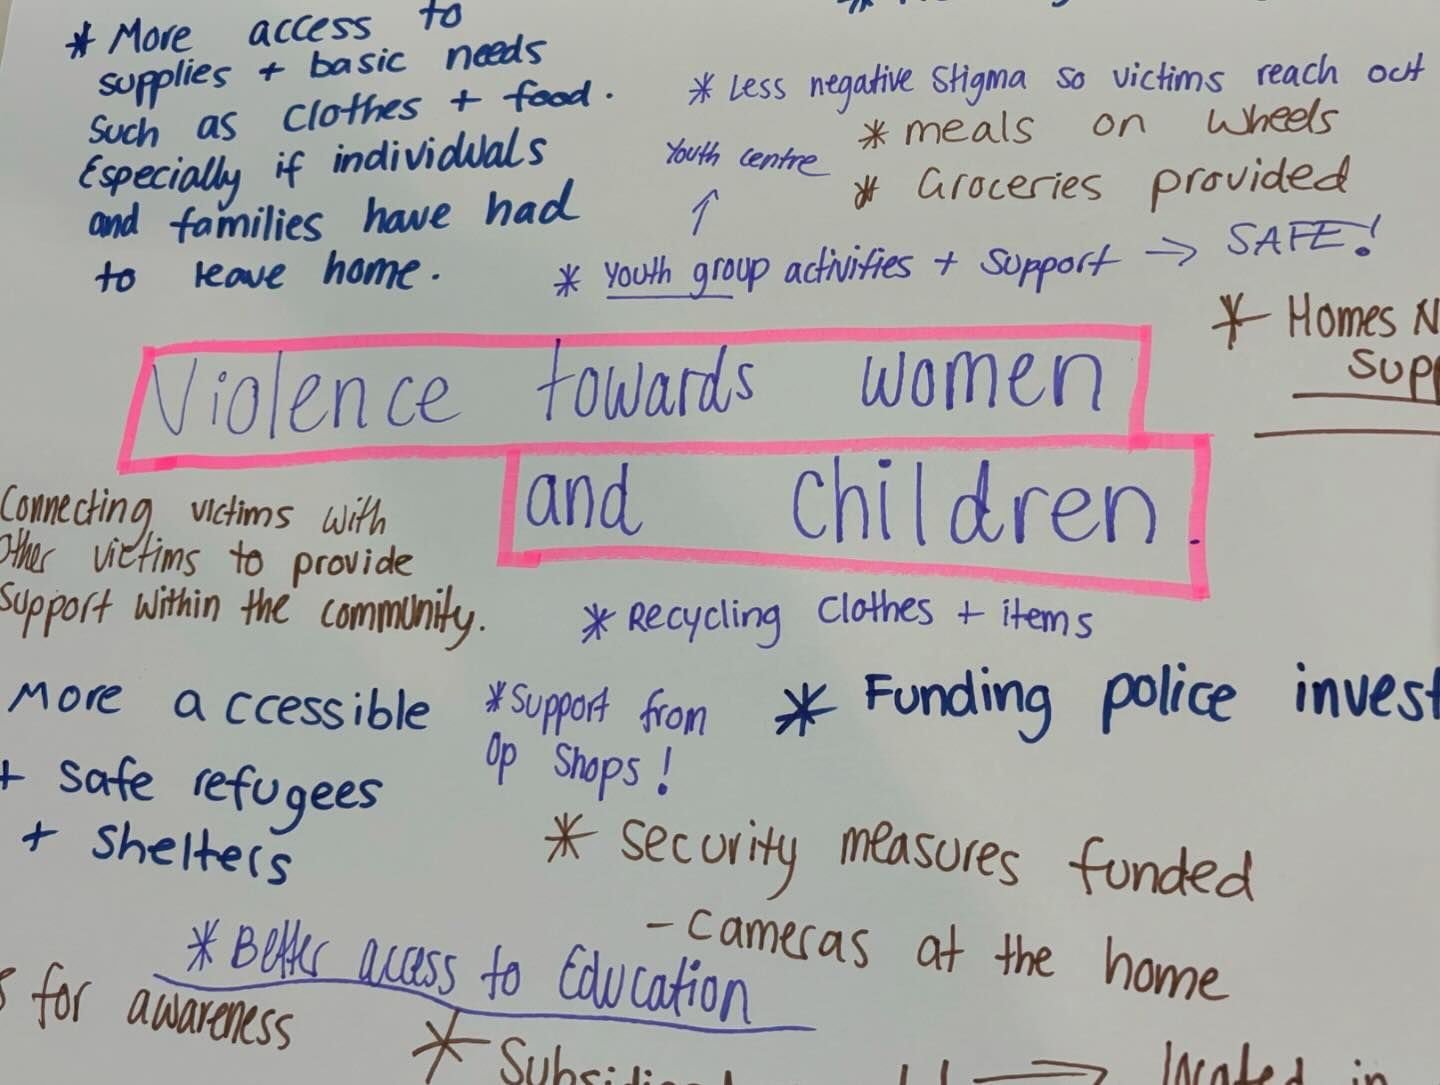 * More access to
supplies + basic needs
such as clothes + food.
Especially if individuals
and families have had
to leave home.
* Less negative stigma so victims reach out
* meals on wheels
Youth centre
* Groceries provided
↑
* Youth group activities + support → SAFE!
* Homes
Violence towards women
and children.
Connecting victims with
other victims to provide
support within the community.
* Recycling clothes + items
More accessible
+ safe refugees
+ shelters
* Support from
Op shops!
* Funding police invest
* Security measures funded
- cameras at the home
* Better access to Education
for awareness
*
→ located in